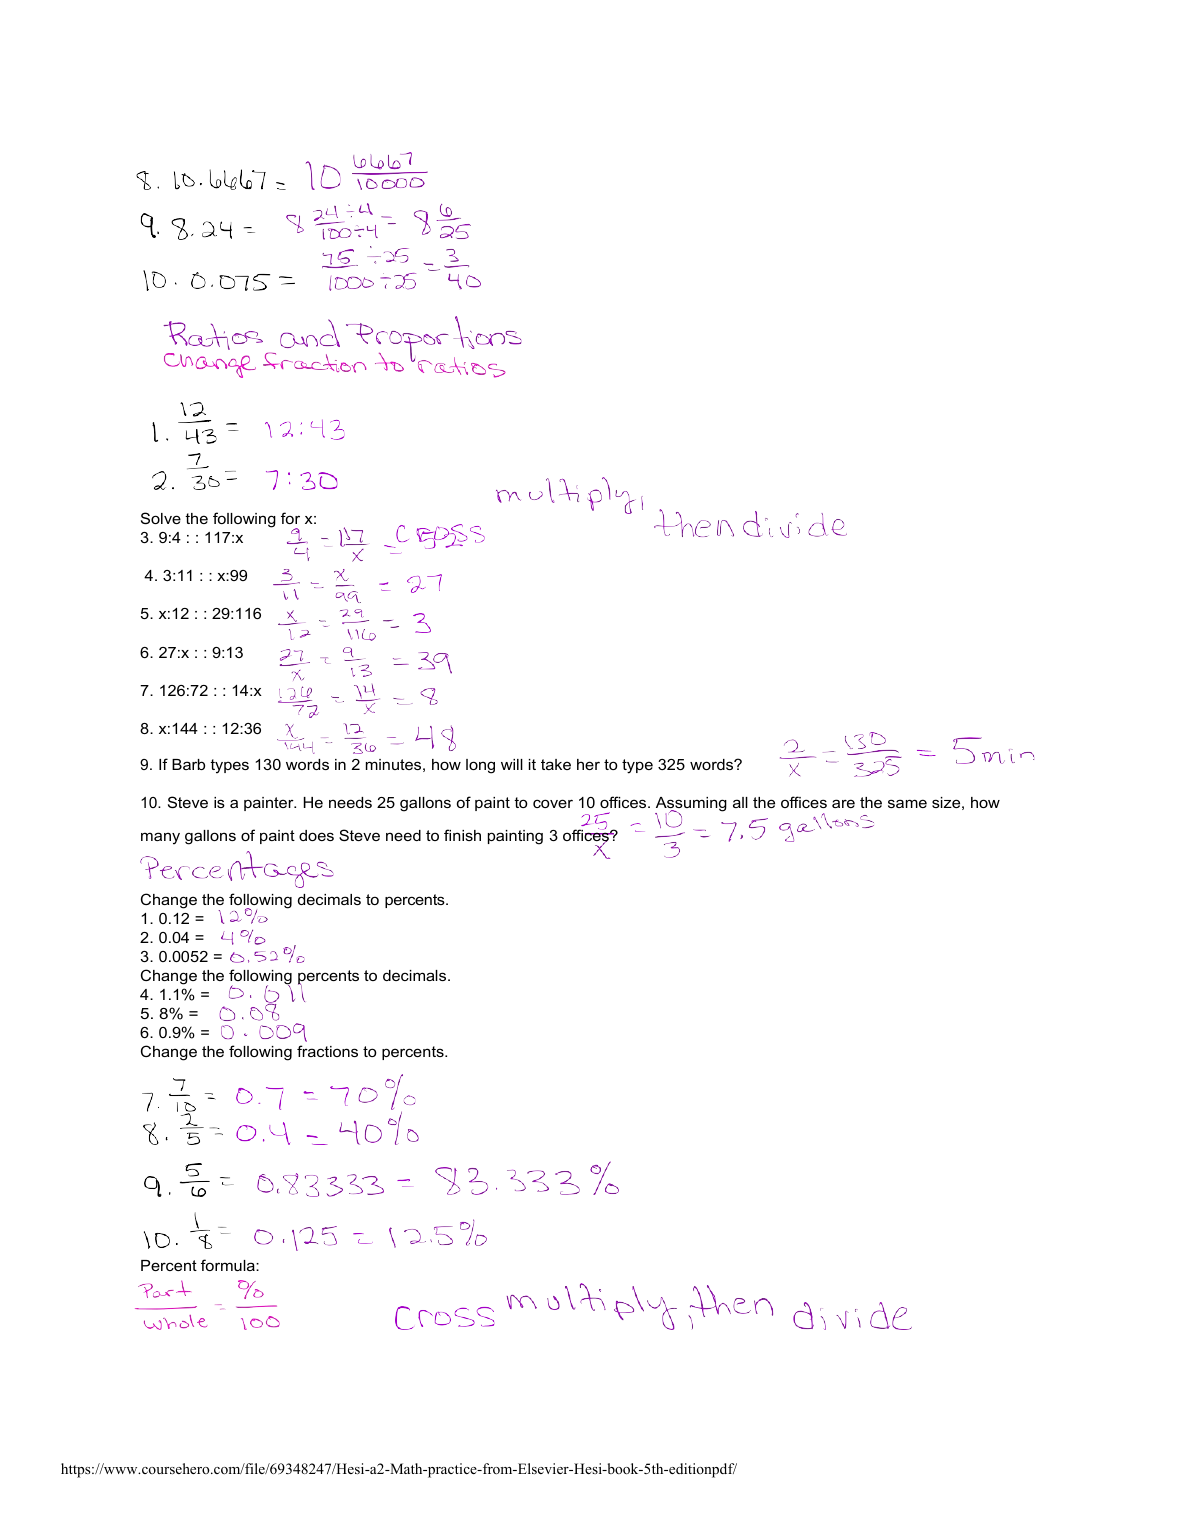 8. 10.6667 = 10 6667/10000
9. 8.24 = 8 24÷4/100÷4 = 8 6/25
10. 0.075 = 75÷25/1000÷25 = 3/40
Ratios and Proportions
Change fraction to ratios
1. 12/43 = 12:43
2. 7/30 = 7:30
multiply,
then divide
Solve the following for x:
3. 9:4 : : 117:x 9/4 = 117/x =
4. 3:11 : : x:99 3/11 = x/99 = 27
5. x:12 : : 29:116 x/12 = 29/116 = 3
6. 27:x : : 9:13 27/x = 9/13 = 39
7. 126:72 : : 14:x 126/72 = 14/x = 8
8. x:144 : : 12:36 x/144 = 12/36 = 48
9. If Barb types 130 words in 2 minutes, how long will it take her to type 325 words? 2/x = 130/325 = 5 min
10. Steve is a painter. He needs 25 gallons of paint to cover 10 offices. Assuming all the offices are the same size, how
many gallons of paint does Steve need to finish painting 3 offices? 25/x = 10/3 = 7.5 gallons
Percentages
Change the following decimals to percents.
1. 0.12 = 12%
2. 0.04 = 4%
3. 0.0052 = 0.52%
Change the following percents to decimals.
4. 1.1% = 0.011
5. 8% = 0.08
6. 0.9% = 0.009
Change the following fractions to percents.
7. 7/10 = 0.7 = 70%
8. 2/5 = 0.4 = 40%
9. 5/6 = 0.83333 = 83.333%
10. 1/8 = 0.125 = 12.5%
Percent formula:
Part/whole = %/100
cross multiply, then divide
https://www.coursehero.com/file/69348247/Hesi-a2-Math-practice-from-Elsevier-Hesi-book-5th-editionpdf/